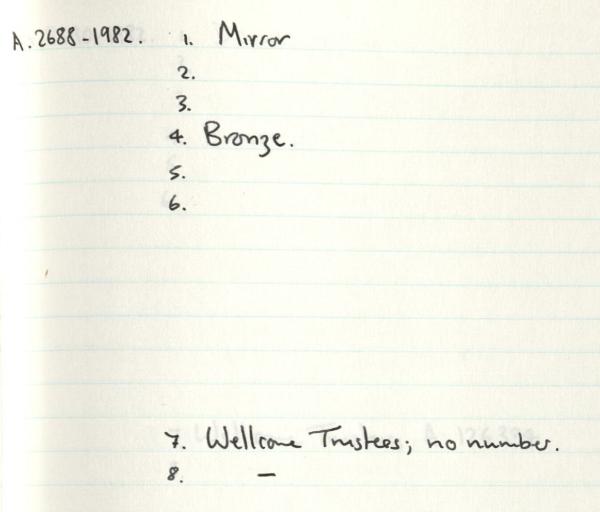 A.2688-1982. 1. Mirror
2.
3.
4. Bronze.
5.
6.
7. Wellcome Trustees; no number.
8. –